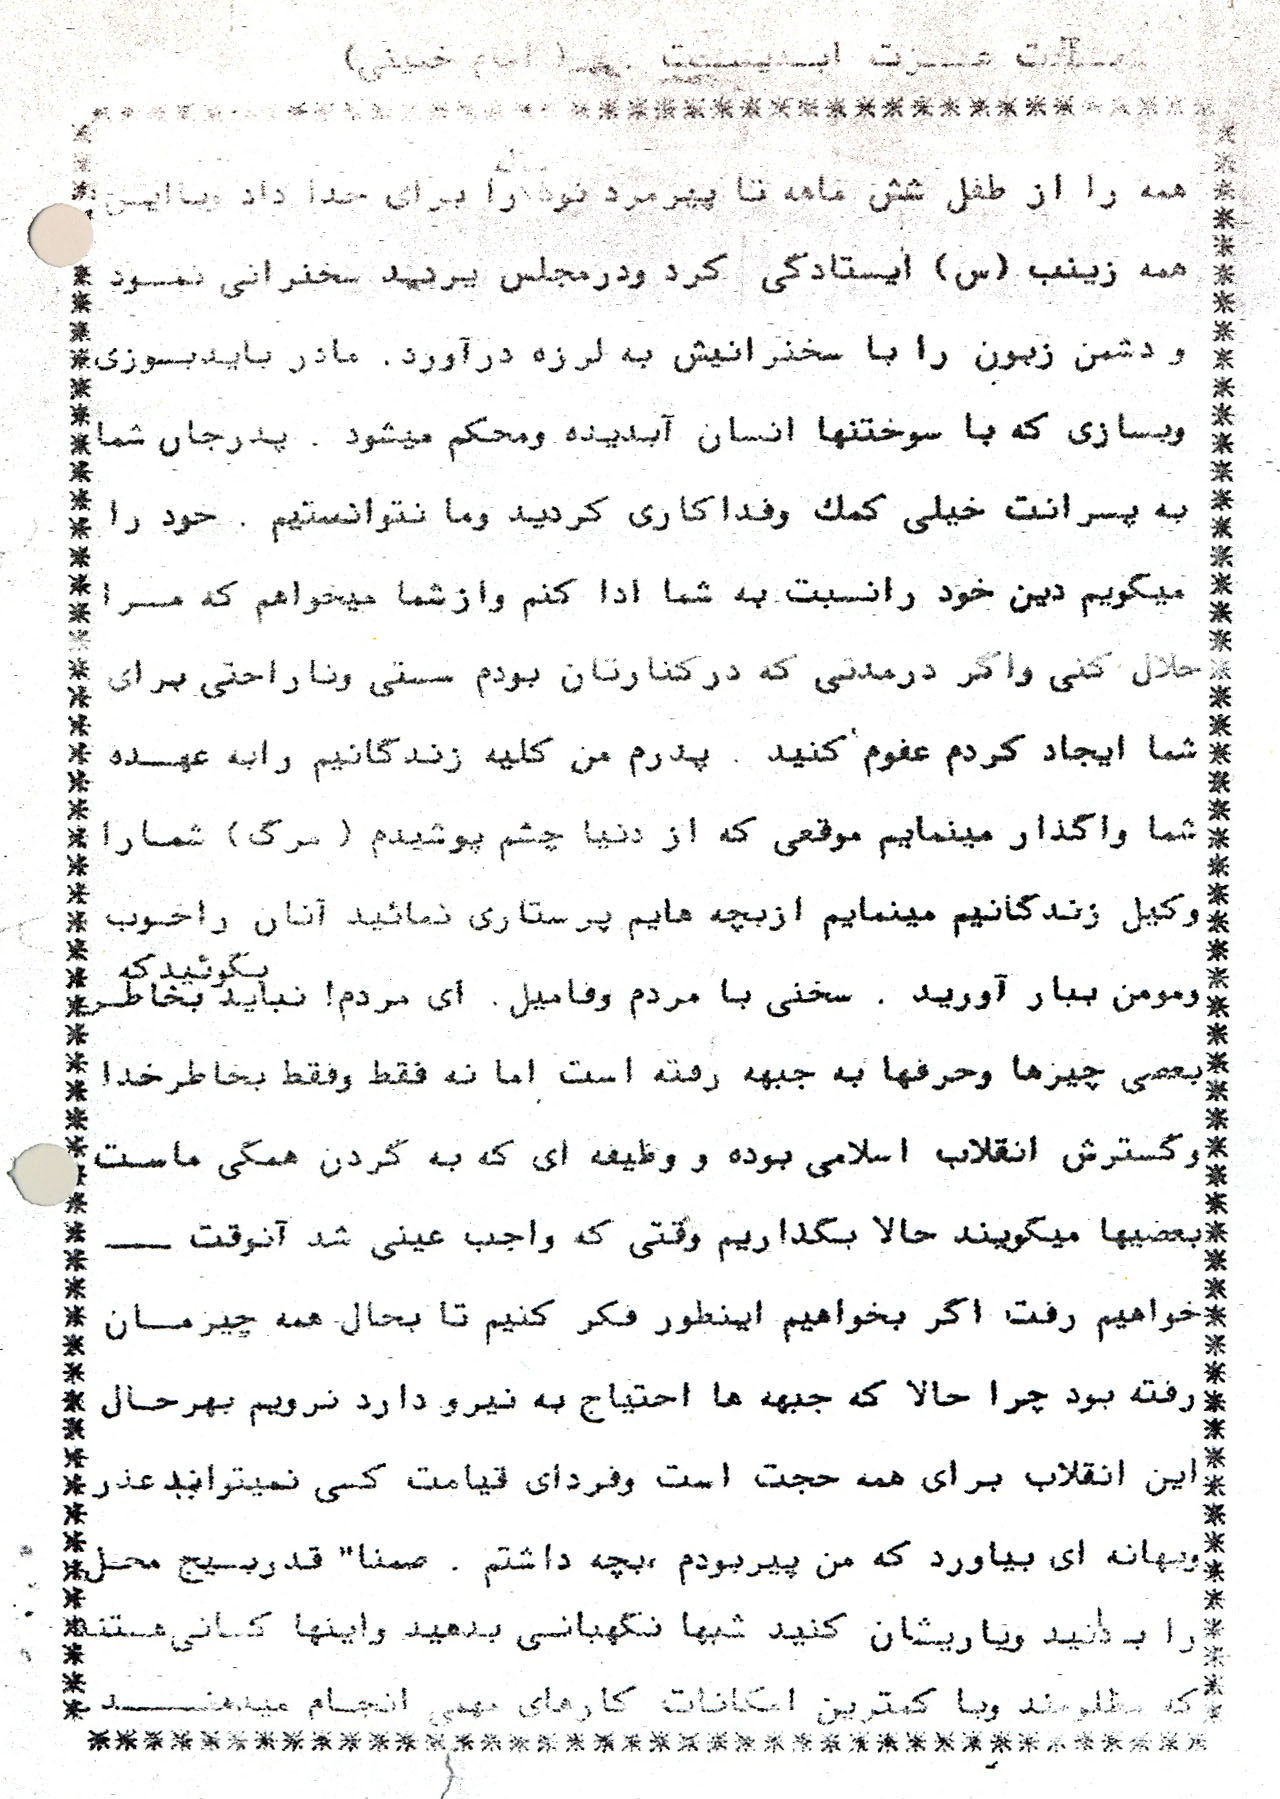 عزت ابدیست . ( امام خمینی)
همه را از طفل شش ماهه تا پیرمرد نود را برای خدا داد وبااین
همه زینب (س) ایستادگی کرد ودرمجلس یزید سخنرانی نمود
و دشمن زبون را با سخنرانیش به لرزه درآورد. مادر بایدبسوزی
وبسازی که با سوختنها انسان آبدیده ومحکم میشود . پدرجان شما
به پسرانت خیلی کمك وفداکاری کردید وما نتوانستیم . خود را
میگویم دین خود رانسبت به شما ادا کنم وازشما میخواهم که مرا
حلال کنی واگر درمدتی که درکنارتان بودم سستی وناراحتی برای
شما ایجاد کردم عفوم کنید . پدرم من کلیه زندگانیم رابه عهده
شما واگذار مینمایم موقعی که از دنیا چشم پوشیدم ( مرگ) شمارا
وکیل زندگانیم مینمایم ازبچه هایم پرستاری نمائید آنان راخوب
ومومن ببار آورید . سخنی با مردم وفامیل. ای مردم! نباید بگوئیدکه بخاطر
بعضی چیزها وحرفها به جبهه رفته است اما نه فقط وفقط بخاطرخدا
وگسترش انقلاب اسلامی بوده و وظیفه ای که به گردن همگی ماست
بعضیها میگویند حالا بگذاریم وقتی که واجب عینی شد آنوقت ــــ
خواهیم رفت اگر بخواهیم اینطور فکر کنیم تا بحال همه چیزمان
رفته بود چرا حالا که جبهه ها احتیاج به نیرو دارد نرویم بهرحال
این انقلاب برای همه حجت است وفردای قیامت کسی نمیتواند عذر
وبهانه ای بیاورد که من پیربودم ،بچه داشتم . ضمنا" قدربسیج محل
را بدانید ویاریشان کنید شبها نگهبانی بدهید واینها کسانی هستند
که مظلومند وبا کمترین امکانات کارهای مهمی انجام میدهند